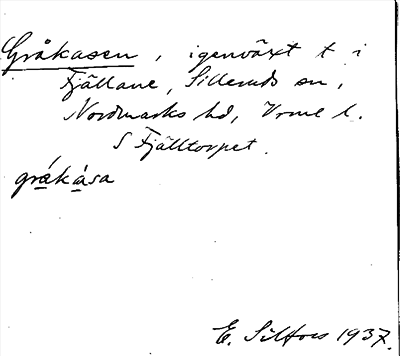 Gråkasen, igenväxt t i
Fjällane, Silleruds sn,
Nordmarks hd, Vrml l.
S Fjälltorpet.
gråkåsa
E. 1937.